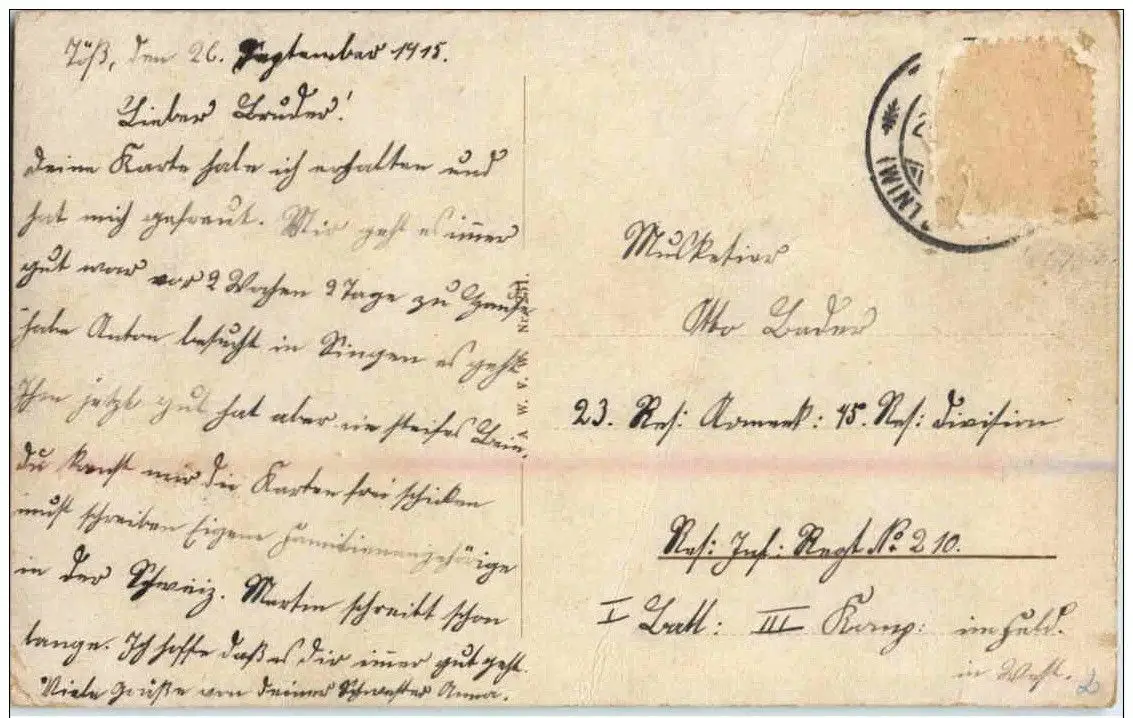 Töß, den 26. September 1915.
Lieber Bruder!
Deine Karte habe ich erhalten und
hat mich gefreut. Mir geht es immer
gut war vor 2 Wochen 2 Tage zu Hause
habe Anton besucht in Singen es geht
Ihm jetzt gut hat aber ein steifes Bein.
du kanst mir die Karten frei schicken
must schreiben Eigene Familienangehörige
in der Schweiz. Martin schreibt schon
lange. Ich hoffe daß es dir immer gut geht.
Viele Grüße von deiner Schwester Anna.
W.
Musketier
Otto Bader
23. Res: Armeek: 45. Res: Division
Res: Inf: Regt. No. 210.
I Batl: III Komp: im Feld.
in West.